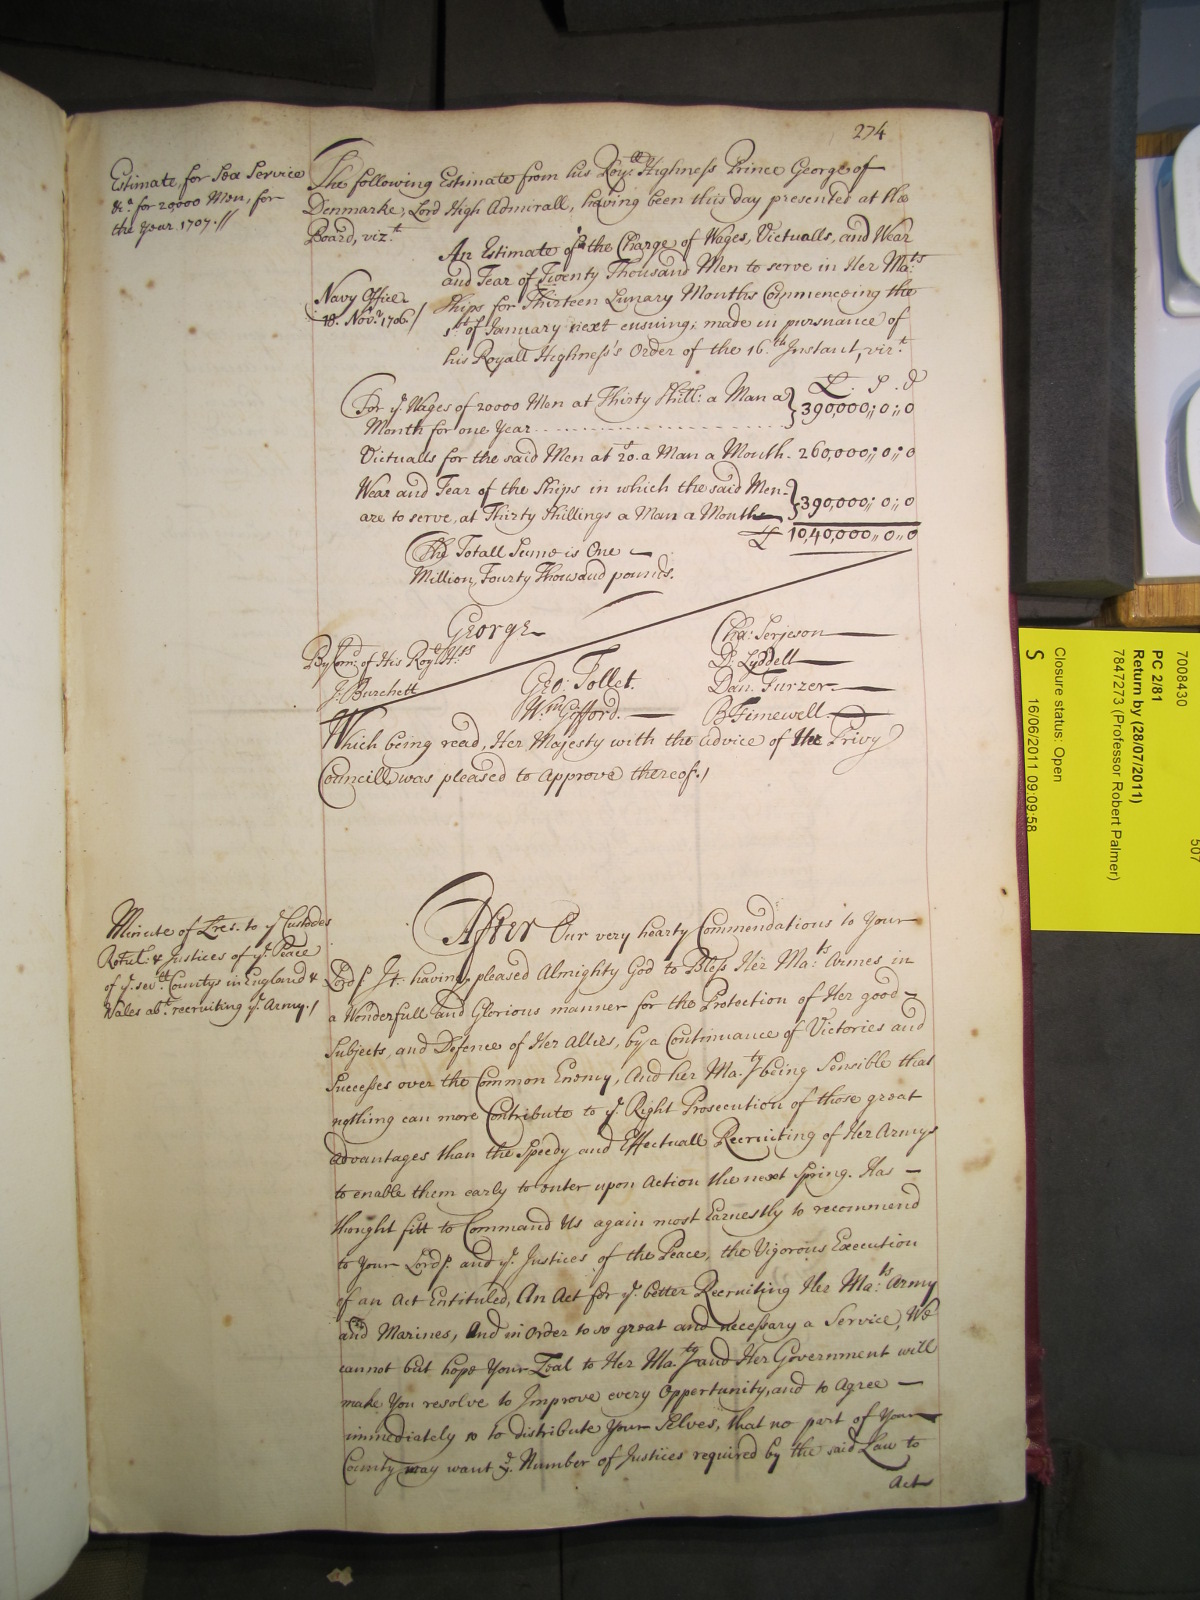 274
Estimate, for Sea Service
&c.a for 20000 Men, for
the Year 1707.//
The following Estimate from his Roy.ll Highness Prince George of
Denmarke, Lord High Admirall, having been this day presented at the
Board, viz.t
An Estimate of the Charge of Wages, Victualls, and Wear
and Tear of Twenty Thousand Men to serve in Her Ma.ts
Navy Office
18. Nov.r 1706./
Ships for Thirteen Lunary Months Commenceing the
1.st of January next ensuing; made in pursuance of
his Royall Highness's Order of the 16.th Instant, viz.t
£ . S . d
For y.e Wages of 20000 Men at Thirty Shill: a Man a } 390,000,, 0,, 0
Month for one Year
Victualls for the said Men at 20.s a Man a Month - 260,000,, 0,, 0
Wear and Tear of the Ships in which the said Men } 390,000,, 0,, 0
are to serve, at Thirty Shillings a Man a Month
£ 10,40,000,, 0,, 0
The Totall Sume is One
Million, Fourty Thousand pounds.
George
By Com.d of His Roy.ll H.ss
J: Burchett
Geo: Tollet.
W.m Gifford.
Cha: Serjeson
D: Lyddell
Dan: Furzer
B Timewell
Which being read, Her Majesty with the advice of Her Privy
Councill was pleased to approve thereof./
Minute of Lres. to y.e Custodes
Rotul: & Justices of y.e Peace
of y.e sev.ll Countys in England &
Wales ab.t recruiting y.e Army./
After Our very hearty Commendations to Your
Lord.p It having pleased Almighty God to Bless Her Ma.ts Armes in
a Wonderfull and Glorious manner for the Protection of Her good
Subjects, and Defence of Her Allies, by a Continuance of Victories and
Successes over the Common Enemy, And her Ma.ty being Sensible that
nothing can more Contribute to y.e Right Prosecution of those great
advantages than the Speedy and Effectuall Recruiting of Her Armys
to enable them early to enter upon Action the next Spring. Has
thought fitt to Command Us again most Earnestly to recommend
to Your Lord.p and y.e Justices of the Peace, the Vigorous Execution
of an Act Entituled, An Act for y.e better Recruiting Her Ma.ts Army
and Marines, And in Order to so great and necessary a Service, We
cannot but hope Your Zeal to Her Ma.ty and Her Government will
make You resolve to Improve every Opportunity, and to Agree
immediately so to distribute Your Selves, that no part of Your
County may want y.e Number of Justices required by the said Law to
Act
7008430
507
PC 2/81
Return by (28/07/2011)
7847273 (Professor Robert Palmer)
Closure status: Open
S 16/06/2011 09:09:58